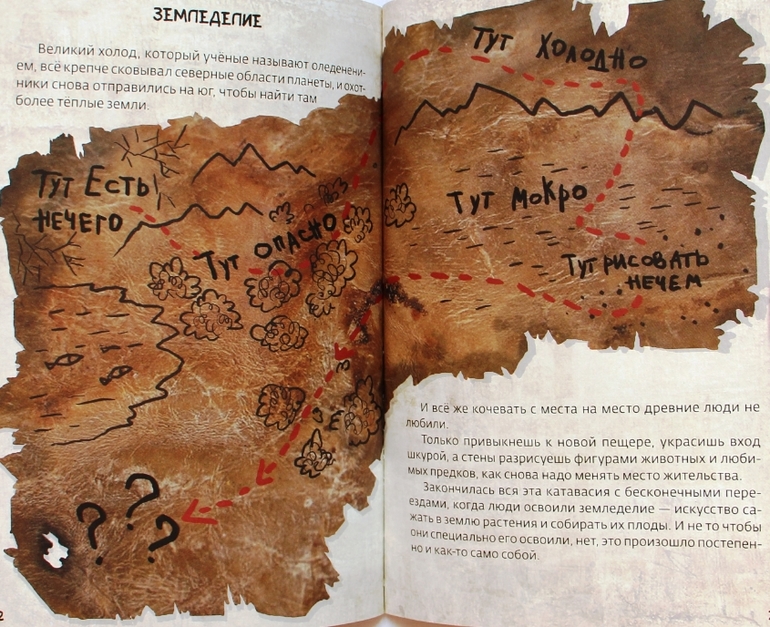 ЗЕМЛЕДЕЛИЕ
Великий холод, который учёные называют оледенени-
ем, всё крепче сковывал северные области планеты, и охот-
ники снова отправились на юг, чтобы найти там
более тёплые земли.
Тут Есть
нечего
Тут опасно
???
Тут холодно
Тут мокро
Тут рисовать
нечем
И всё же кочевать с места на место древние люди не
любили.
Только привыкнешь к новой пещере, украсишь вход
шкурой, а стены разрисуешь фигурами животных и люби-
мых предков, как снова надо менять место жительства.
Закончилась вся эта катавасия с бесконечными пере-
ездами, когда люди освоили земледелие — искусство са-
жать в землю растения и собирать их плоды. И не то чтобы
они специально его освоили, нет, это произошло постепен-
но и как-то само собой.